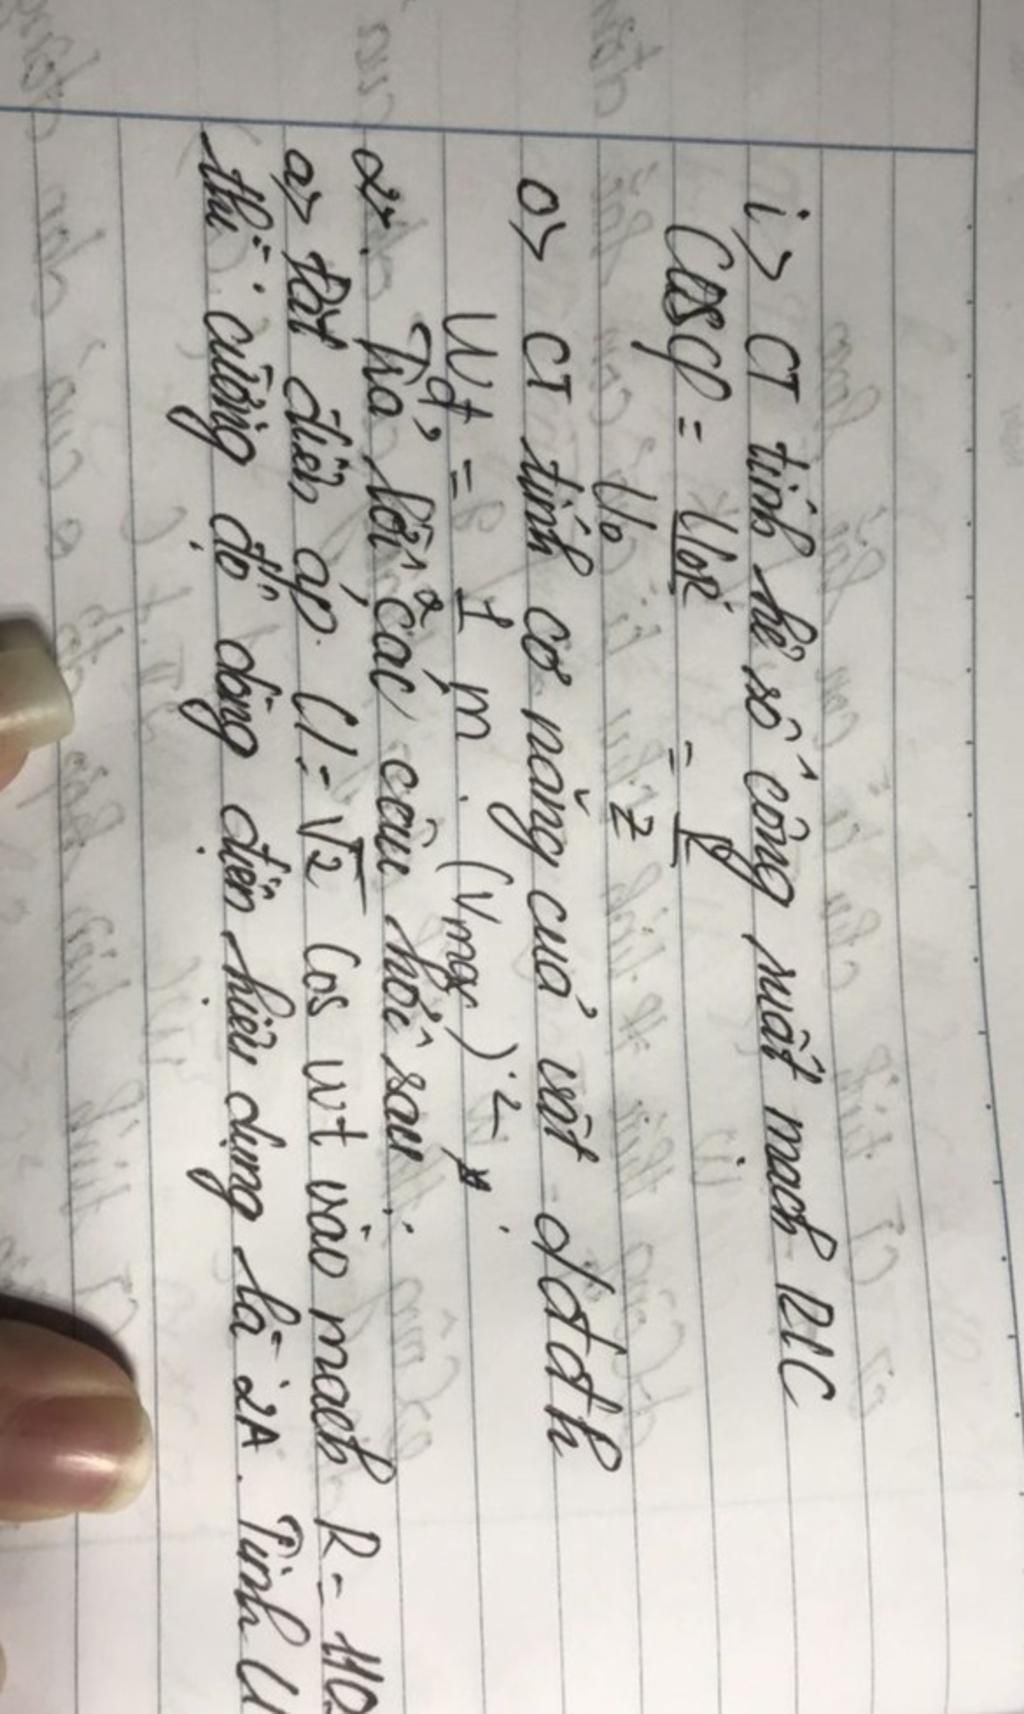 i> CT tính hệ số công suất mạch RLC
Cosφ = U₀R / U₀ = R / Z
o> CT tính cơ năng của vật dđđh
Wđ = 1/2 m. (Vmax)²
2. Trả lời các câu hỏi sau:
a> Đặt điện áp U = √2 Cos wt vào mạch R = 110
thì cường độ dòng điện hiệu dụng là 2A. Tính U